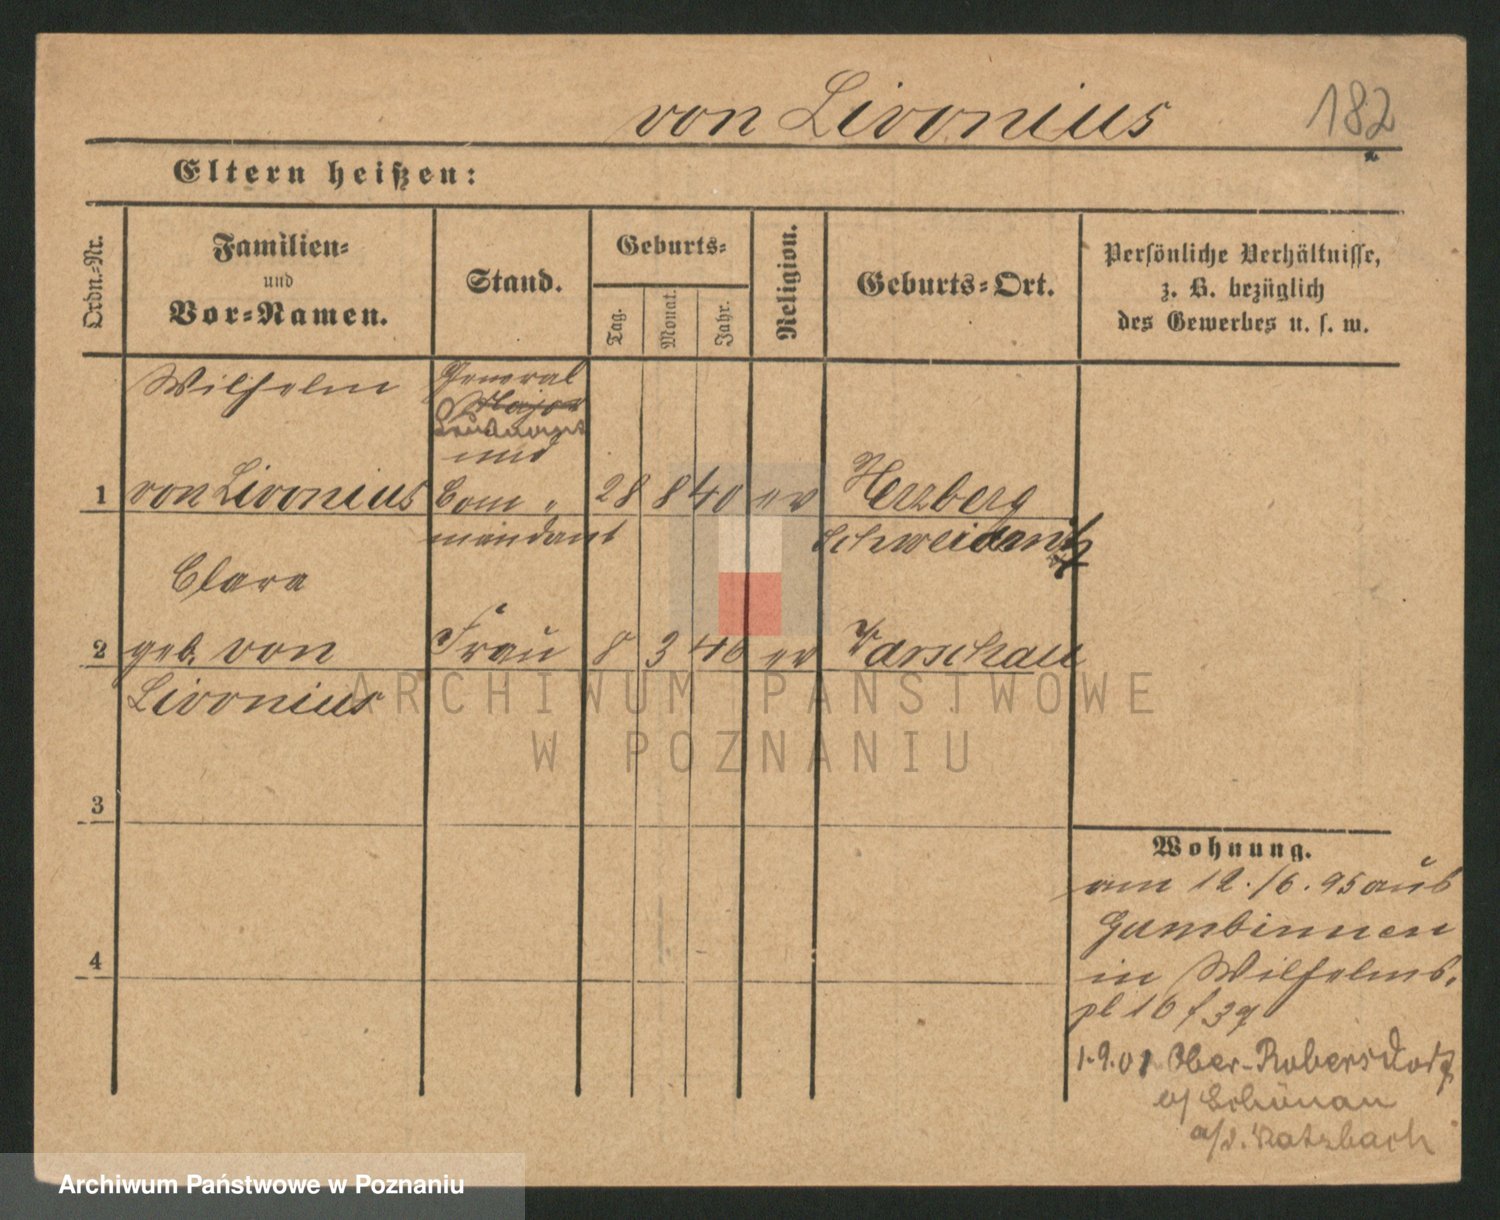 von Livonius
182
Eltern heißen:
Ordn.-Nr.
Familien-
und
Vor-Namen.
Stand.
Geburts-
Tag.
Monat.
Jahr.
Religion.
Geburts-Ort.
Persönliche Verhältnisse,
z. B. bezüglich
des Gewerbes u. s. w.
Wilhelm
General
Major
und
1 von Livonius Com 28 8 40 ev Herzberg
mandant Schweidnitz
Clara
2 geb. von Frau 8 3 46 ev Warschau
Livonius
3
4
Wohnung.
am 12./6. 95 aus
Gumbinnen
in Wilhelms.
pl 16
1.9.01 Ober-Röbersdorf
b/ Schönau
a/d. Katzbach
ARCHIWUM PAŃSTWOWE
W POZNANIU
Archiwum Państwowe w Poznaniu